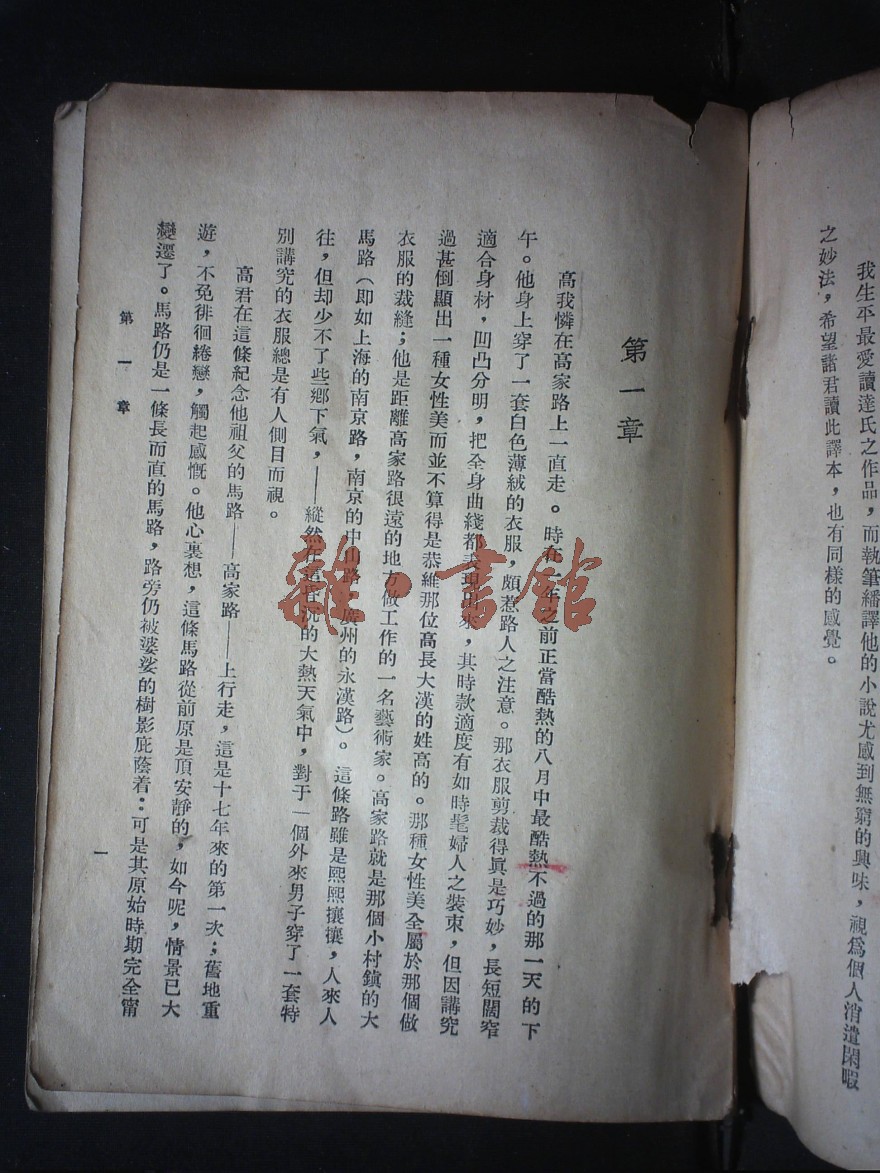 我生平最愛讀達氏之作品，而執筆繙譯他的小說尤感到無窮的興味，視爲個人消遣閑暇
之妙法，希望諸君讀此譯本，也有同樣的感覺。
第一章
高我憐在高家路上一直走。時在一年之前正當酷熱的八月中最酷熱不過的那一天的下
午。他身上穿了一套白色薄絨的衣服，頗惹路人之注意。那衣服剪裁得眞是巧妙，長短闊窄
適合身材，凹凸分明，把全身曲綫都表現出來，其時款適度有如時髦婦人之裝束，但因講究
過甚倒顯出一種女性美而並不算得是恭維那位高長大漢的姓高的。那種女性美全屬於那個做
衣服的裁縫；他是距離高家路很遠的地方做工作的一名藝術家。高家路就是那個小村鎭的大
馬路（即如上海的南京路，南京的中山路，廣州的永漢路）。這條路雖是熙熙攘攘，人來人
往，但却少不了些鄉下氣，——縱然在這的大熱天氣中，對于一個外來男子穿了一套特
別講究的衣服總是有人側目而視。
高君在這條紀念他祖父的馬路——高家路——上行走，這是十七年來的第一次；舊地重
遊，不免徘徊綣戀，觸起感慨。他心裏想，這條馬路從前原是頂安靜的，如今呢，情景已大
變遷了。馬路仍是一條長而直的馬路，路旁仍被婆娑的樹影庇蔭着：可是其原始時期完全甯
第一章
一
雜·書館